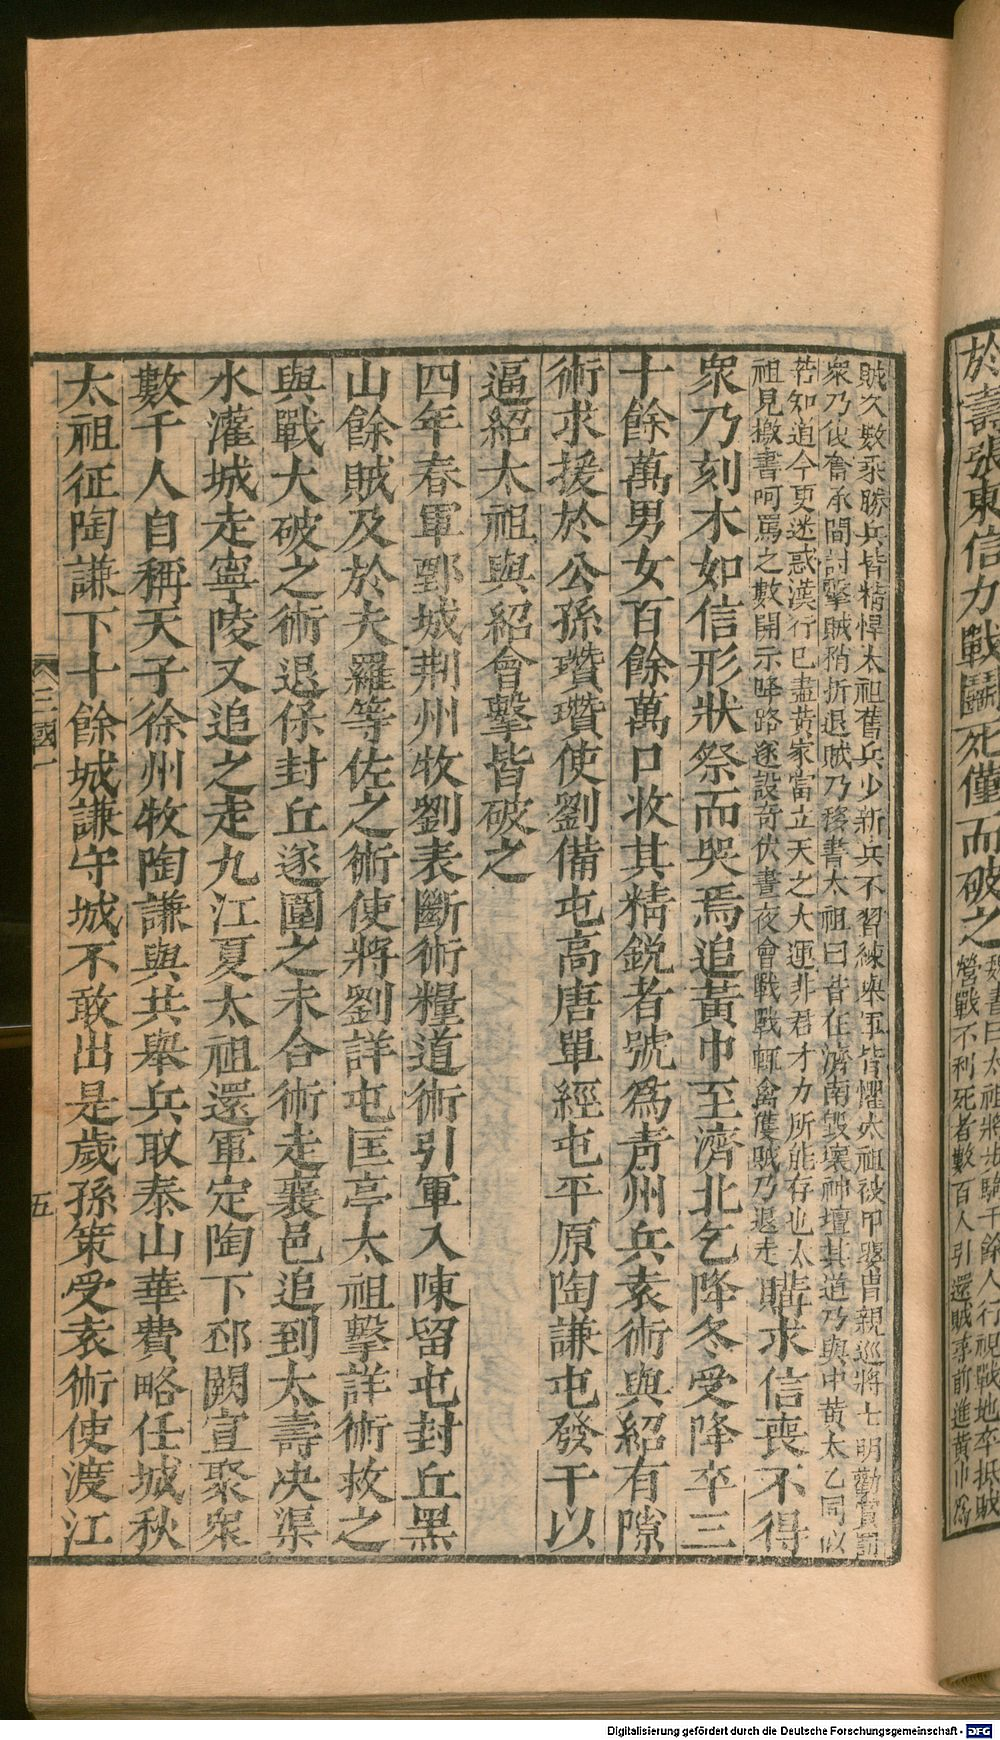 於壽張東信力戰鬭死僅而破之
魏書曰太祖將步騎千餘人行視戰地卒抵賊
營戰不利死者數百人引還賊尋前進黃巾爲
賊久數乘勝兵皆精悍太祖舊兵少新兵不習練舉軍皆懼太祖被甲嬰胄親巡將士明勸賞罰
衆乃復奮承間討擊賊稍折退賊乃移書太祖曰昔在濟南毀壞神壇其道乃與中黃太乙同似
若知道今更迷惑漢行已盡黃家當立天之大運非君才力所能存也太
祖見檄書呵罵之數開示降路遂設奇伏晝夜會戰戰輒禽獲賊乃退走
購求信喪不得
衆乃刻木如信形狀祭而哭焉追黃巾至濟北乞降冬受降卒三
十餘萬男女百餘萬口收其精銳者號爲靑州兵袁術與紹有隙
術求援於公孫瓚瓚使劉備屯高唐單經屯平原陶謙屯發干以
逼紹太祖與紹會擊皆破之
四年春軍鄄城荆州牧劉表斷術糧道術引軍入陳留屯封丘黑
山餘賊及於夫羅等佐之術使將劉詳屯匡亭太祖擊詳術救之
與戰大破之術退保封丘遂圍之未合術走襄邑追到太壽决渠
水灌城走寧陵又追之走九江夏太祖還軍定陶下邳闕宣聚衆
數千人自稱天子徐州牧陶謙與共舉兵取泰山華費略任城秋
太祖征陶謙下十餘城謙守城不敢出是歲孫策受袁術使渡江
三國一
五
Digitalisierung gefördert durch die Deutsche Forschungsgemeinschaft - DFG